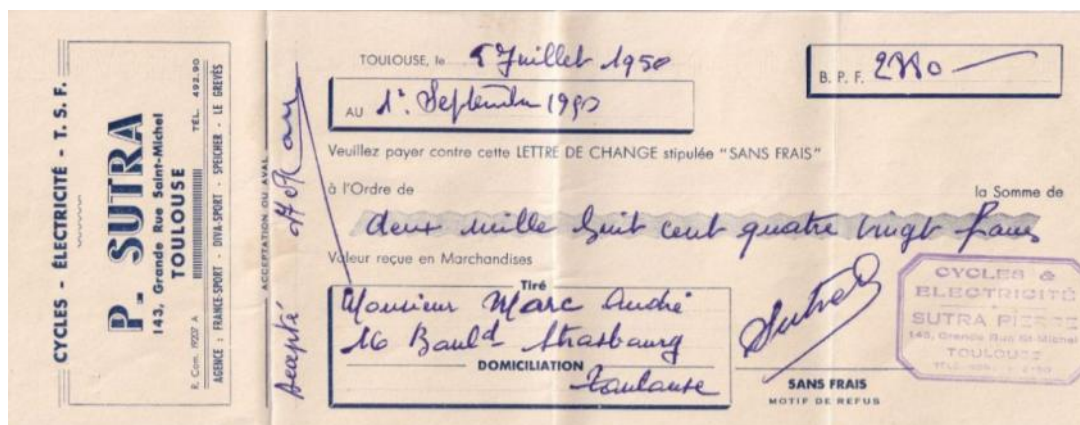 CYCLES - ÉLECTRICITÉ - T. S. F.
P. SUTRA
143, Grande Rue Saint-Michel
TOULOUSE
R. Com. 19207 A TÉL. 492.90
AGENCE : FRANCE-SPORT - DIVA-SPORT - SPEICHER - LE GREVÈS
ACCEPTATION OU AVAL
Accepté
TOULOUSE, le 5 Juillet 1950
AU 1er Septembre 1950
B. P. F. 2880
Veuillez payer contre cette LETTRE DE CHANGE stipulée "SANS FRAIS"
à l'Ordre de la Somme de
deux mille huit cent quatre vingt francs
Valeur reçue en Marchandises
Tiré
Monsieur Marc André
16 Bould Strasbourg
DOMICILIATION
Toulouse
Sutra
SANS FRAIS
MOTIF DE REFUS
CYCLES &
ELECTRICITÉ
SUTRA PIERRE
Grande Rue St-Michel
TOULOUSE